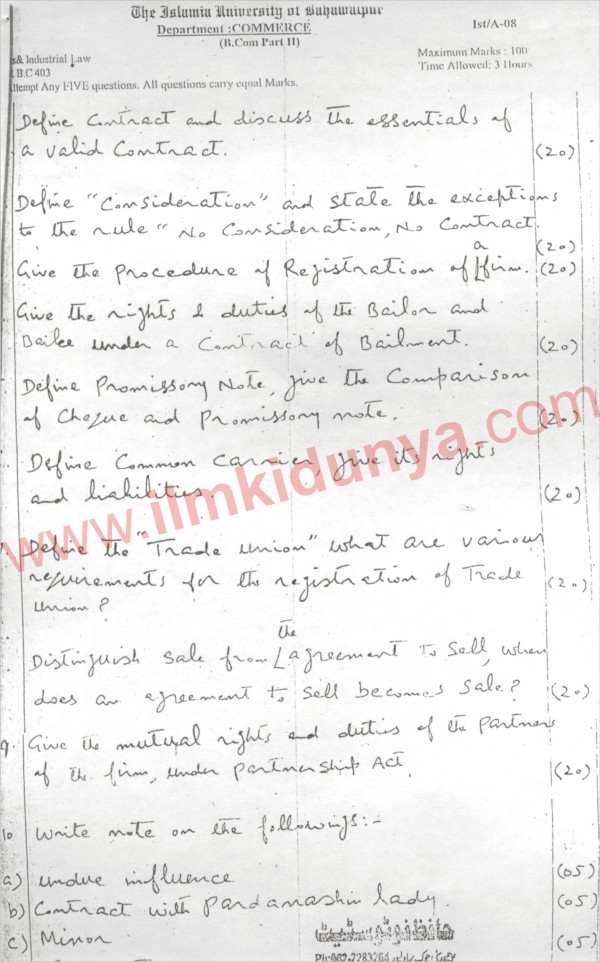 The Islamia University of Bahawalpur
Department: COMMERCE
(B.Com Part II)
Ist/A-08
Maximum Marks : 100
Time Allowed: 3 Hours
& Industrial Law
B.C 403
ttempt Any FIVE questions. All questions carry equal Marks.
Define Contract and discuss the essentials of
a valid Contract. (20)
Define "Consideration" and state the exceptions
to the rule "No Consideration, No Contract. (20)
Give the Procedure of Registration of a firm. (20)
Give the rights & duties of the Bailor and
Bailee under a Contract of Bailment. (20)
Define Promissory Note, give the Comparison
of Cheque and Promissory note. (20)
Define Common Carrier, give its rights
and liabilities. (20)
www.ilmkidunya.com
Define the "Trade union" what are various
requirements for the registration of Trade
union? (20)
Distinguish Sale from the agreement to Sell, when
does an agreement to sell becomes Sale? (20)
9. Give the mutual rights and duties of the Partners
of the firm, under Partnership Act. (20)
10 Write note on the followings:-
a) undue influence (05)
b) Contract with Pardanashin lady. (05)
c) Minor (05)